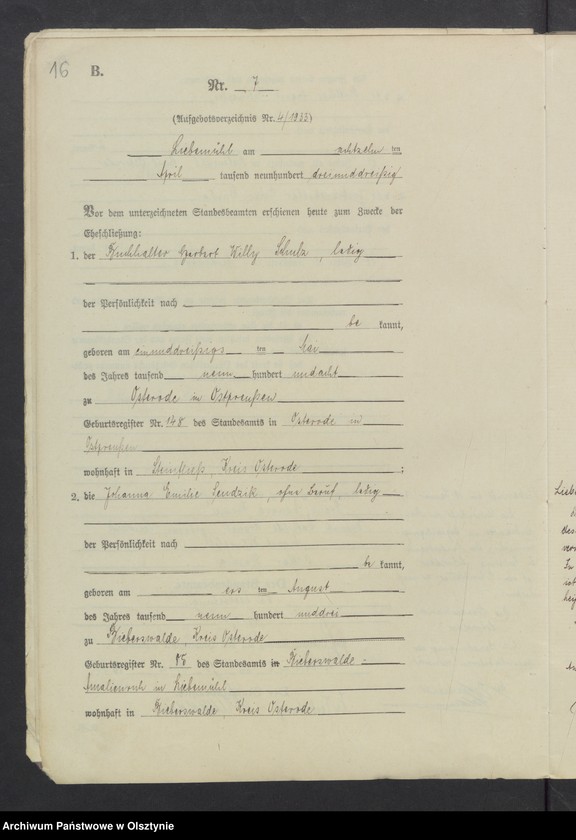 16
B.
Nr. 7
(Aufgebotsverzeichnis Nr. 4/1933)
Liebemühl am achtzehn ten
April tausend neunhundert dreiunddreißig
Vor dem unterzeichneten Standesbeamten erschienen heute zum Zwecke der
Eheschließung:
1. der Buchhalter Herbert Willy Schulz, ledig
der Persönlichkeit nach
be kannt,
geboren am einunddreißigs ten Mai
des Jahres tausend neun hundert undacht
zu Osterode in Ostpreußen
Geburtsregister Nr. 148 des Standesamts in Osterode in
Ostpreußen
wohnhaft in Kreis Osterode ;
2. die Johanna Emilie Sendzik, ohne Beruf, ledig
der Persönlichkeit nach
be kannt,
geboren am ers ten August
des Jahres tausend neun hundert unddrei
zu Bieberswalde, Kreis Osterode
Geburtsregister Nr. 88 des Standesamts in Bieberswalde-
in Liebemühl
wohnhaft in Bieberswalde, Kreis Osterode
Archiwum Państwowe w Olsztynie